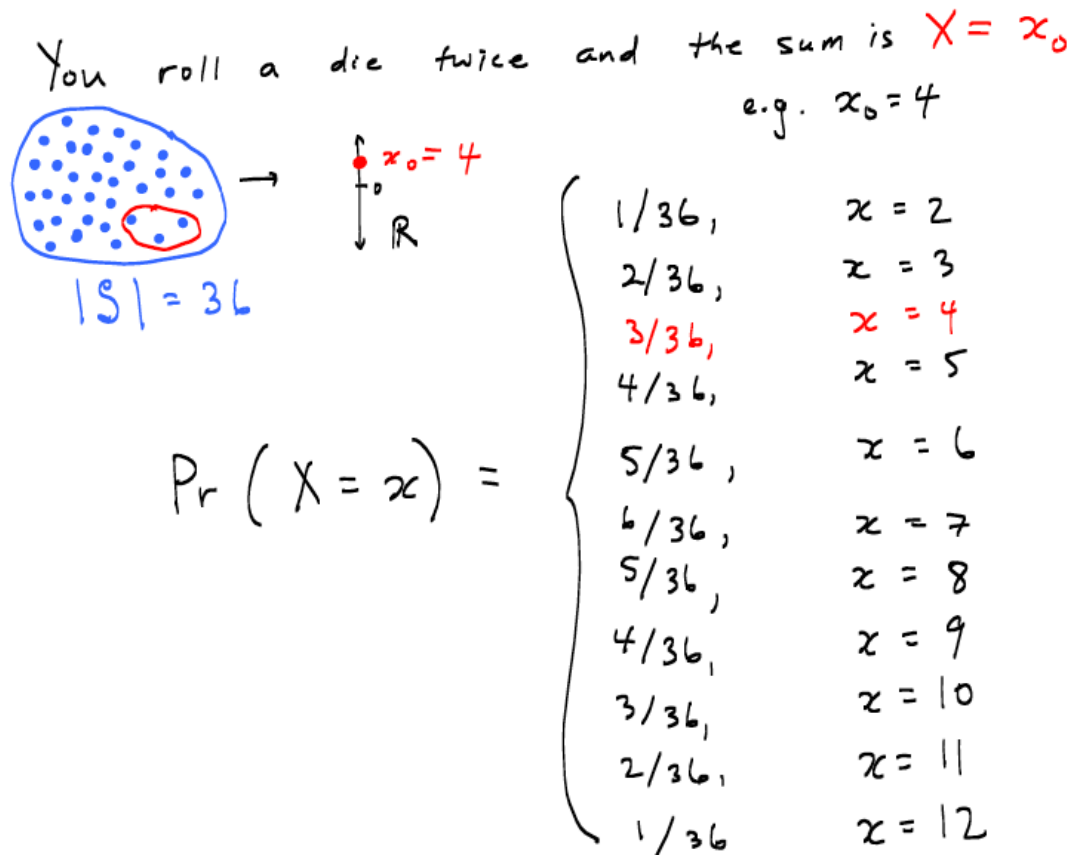 You roll a die twice and the sum is X = x₀
e.g. x₀ = 4
x₀ = 4
0
ℝ
|S| = 36
Pr ( X = x ) =
1/36, x = 2
2/36, x = 3
3/36, x = 4
4/36, x = 5
5/36, x = 6
6/36, x = 7
5/36, x = 8
4/36, x = 9
3/36, x = 10
2/36, x = 11
1/36 x = 12